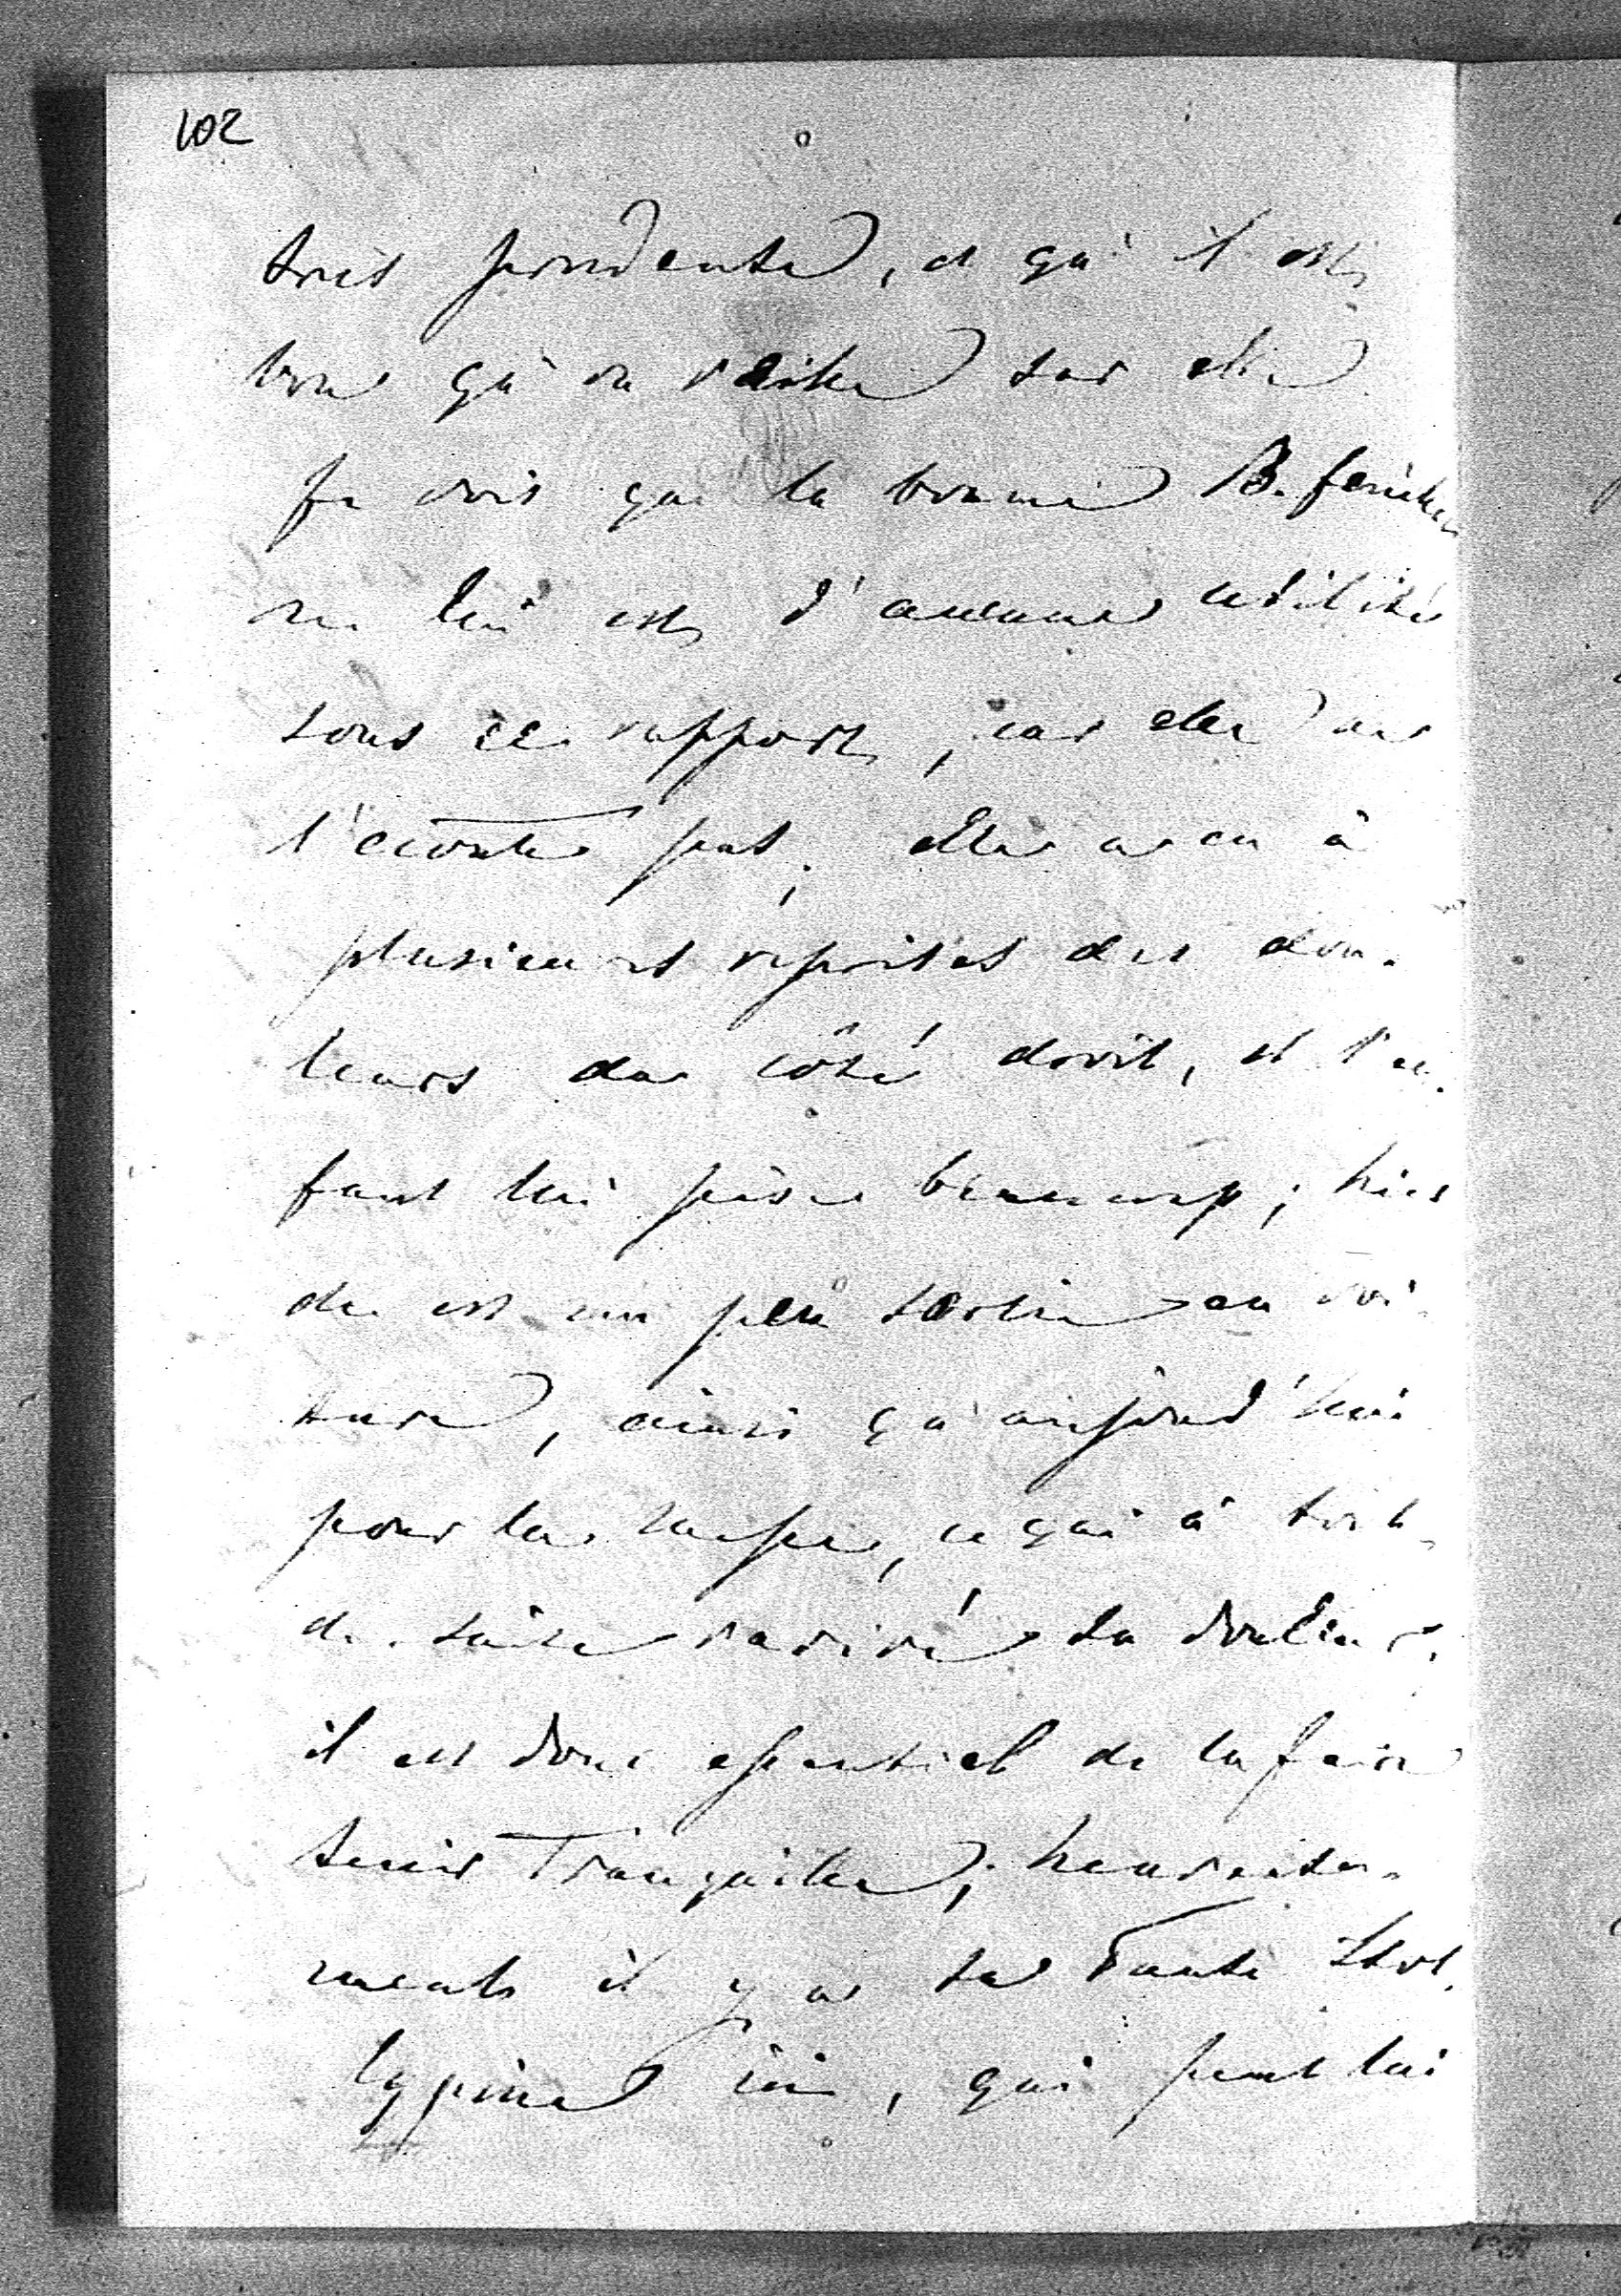 102
très prudente, et qu'il est
bon qu'on veille sur elle
je vois que la bonne B.
ne lui est d'aucune utilité
sous ce rapport, car elle ne
l'écoute pas; elle a eu à
plusieurs reprises des dou-
leurs au côté droit, et l'en-
fant lui pèse beaucoup; hier
elle est un peu sortie en voi-
ture, ainsi qu'aujourd'hui
pour la messe, ce qui a tout
de suite ravivé sa douleur,
il est donc essentiel de la faire
tenir tranquille; heureuse-
ment il y a sa tante
ici, qui peut lui